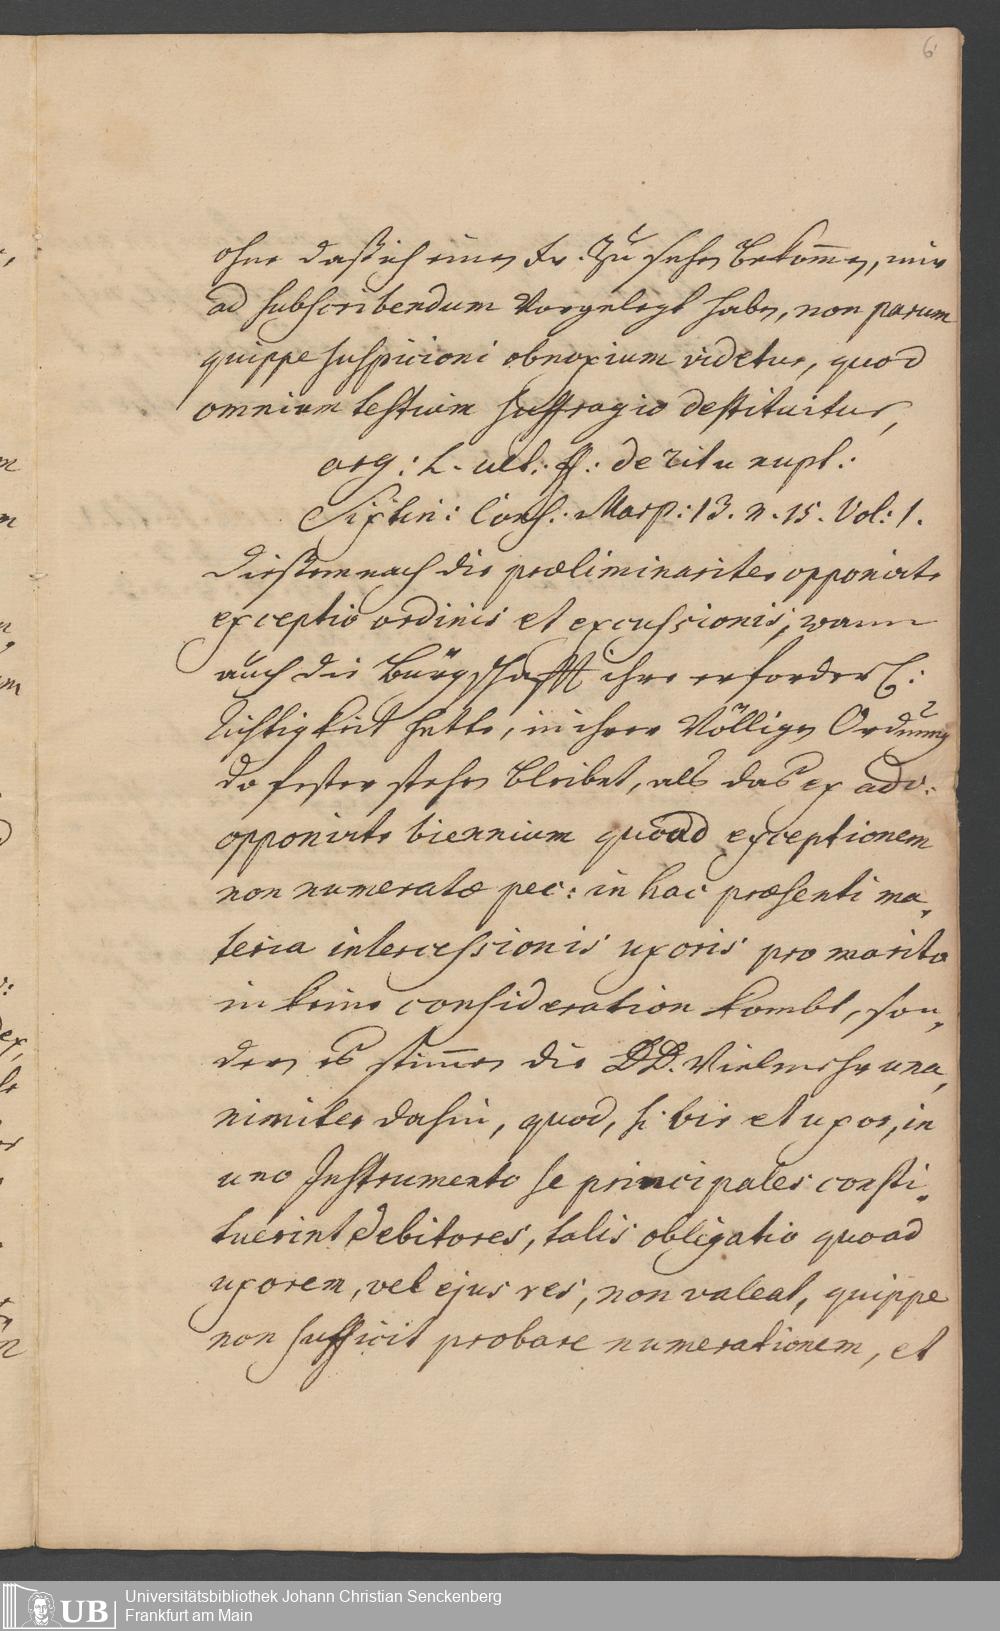 6
ohne daß ich einen Kr. zu sehen bekommen, mir
ad subscribendum Vorgelegt haben, non parum
quippe suspicioni obnoxium videtur, quod
omnium testium suffragio destituitur,
arg: L. ult: ff: de ritu nupt:
Sixtin: Cons: Marp: 13. n. 15. Vol: 1.
Diesemnach die præliminariter opponirte
exceptio ordinis et excussionis, wann
auch die Bürgschafft ihre erforderl:
Richtigkeit hette, in ihrer Völligen Ordnung
do fester stehen bleibet, als das ex adv:
opponirte biennium quoad exceptionem
non numeratæ pec: in hac præsenti ma„
teria intercessionis uxoris pro marito
in keine consideration kombt, son„
dern es stimmen die DD. Vielmehr una„
nimiter dahin, quod, si vir et uxor, in
uno Instrumento se principales consti„
tuerint debitores, talis obligatio quoad
uxorem, vel ejus res, non valeat, quippe
non sufficit probare numerationem, et
UB
Universitätsbibliothek Johann Christian Senckenberg
Frankfurt am Main